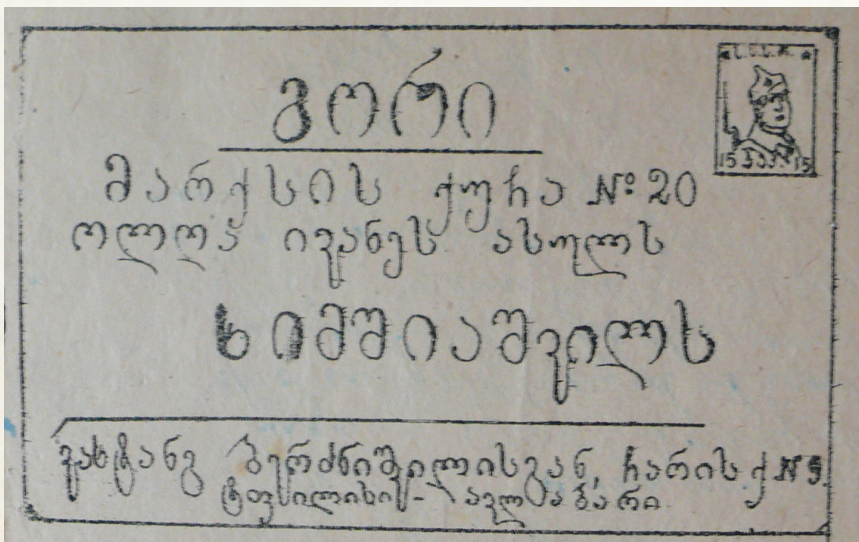 С.С.С.Р.
გორი
15 კაპ. 15
მარქსის ქუჩა № 20
ოლღა ივანეს ასულს
ხიმშიაშვილს
ვახტანგ ბერძნიშვილისგან, ჩარის ქ № 5.
ტფილისი - ავლაბარი